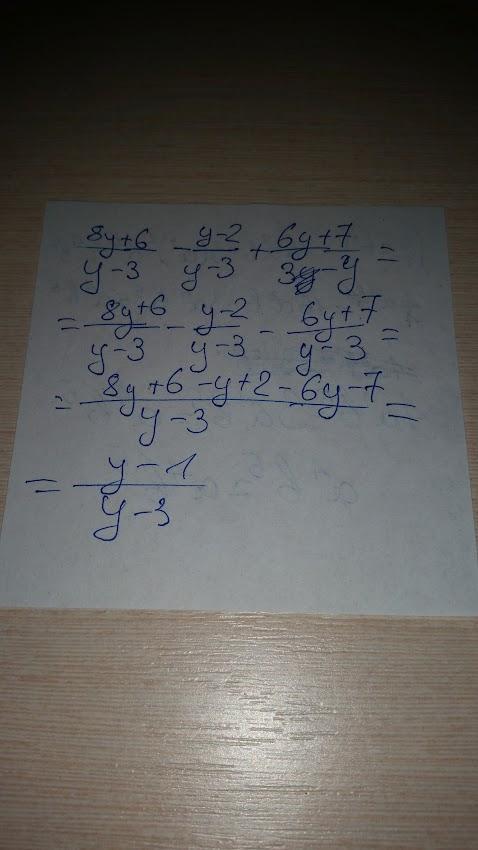 8y+6/y-3 - y-2/y-3 + 6y+7/3-y =
= 8y+6/y-3 - y-2/y-3 - 6y+7/y-3 =
= 8y+6-y+2-6y-7/y-3 =
= y-1/y-3